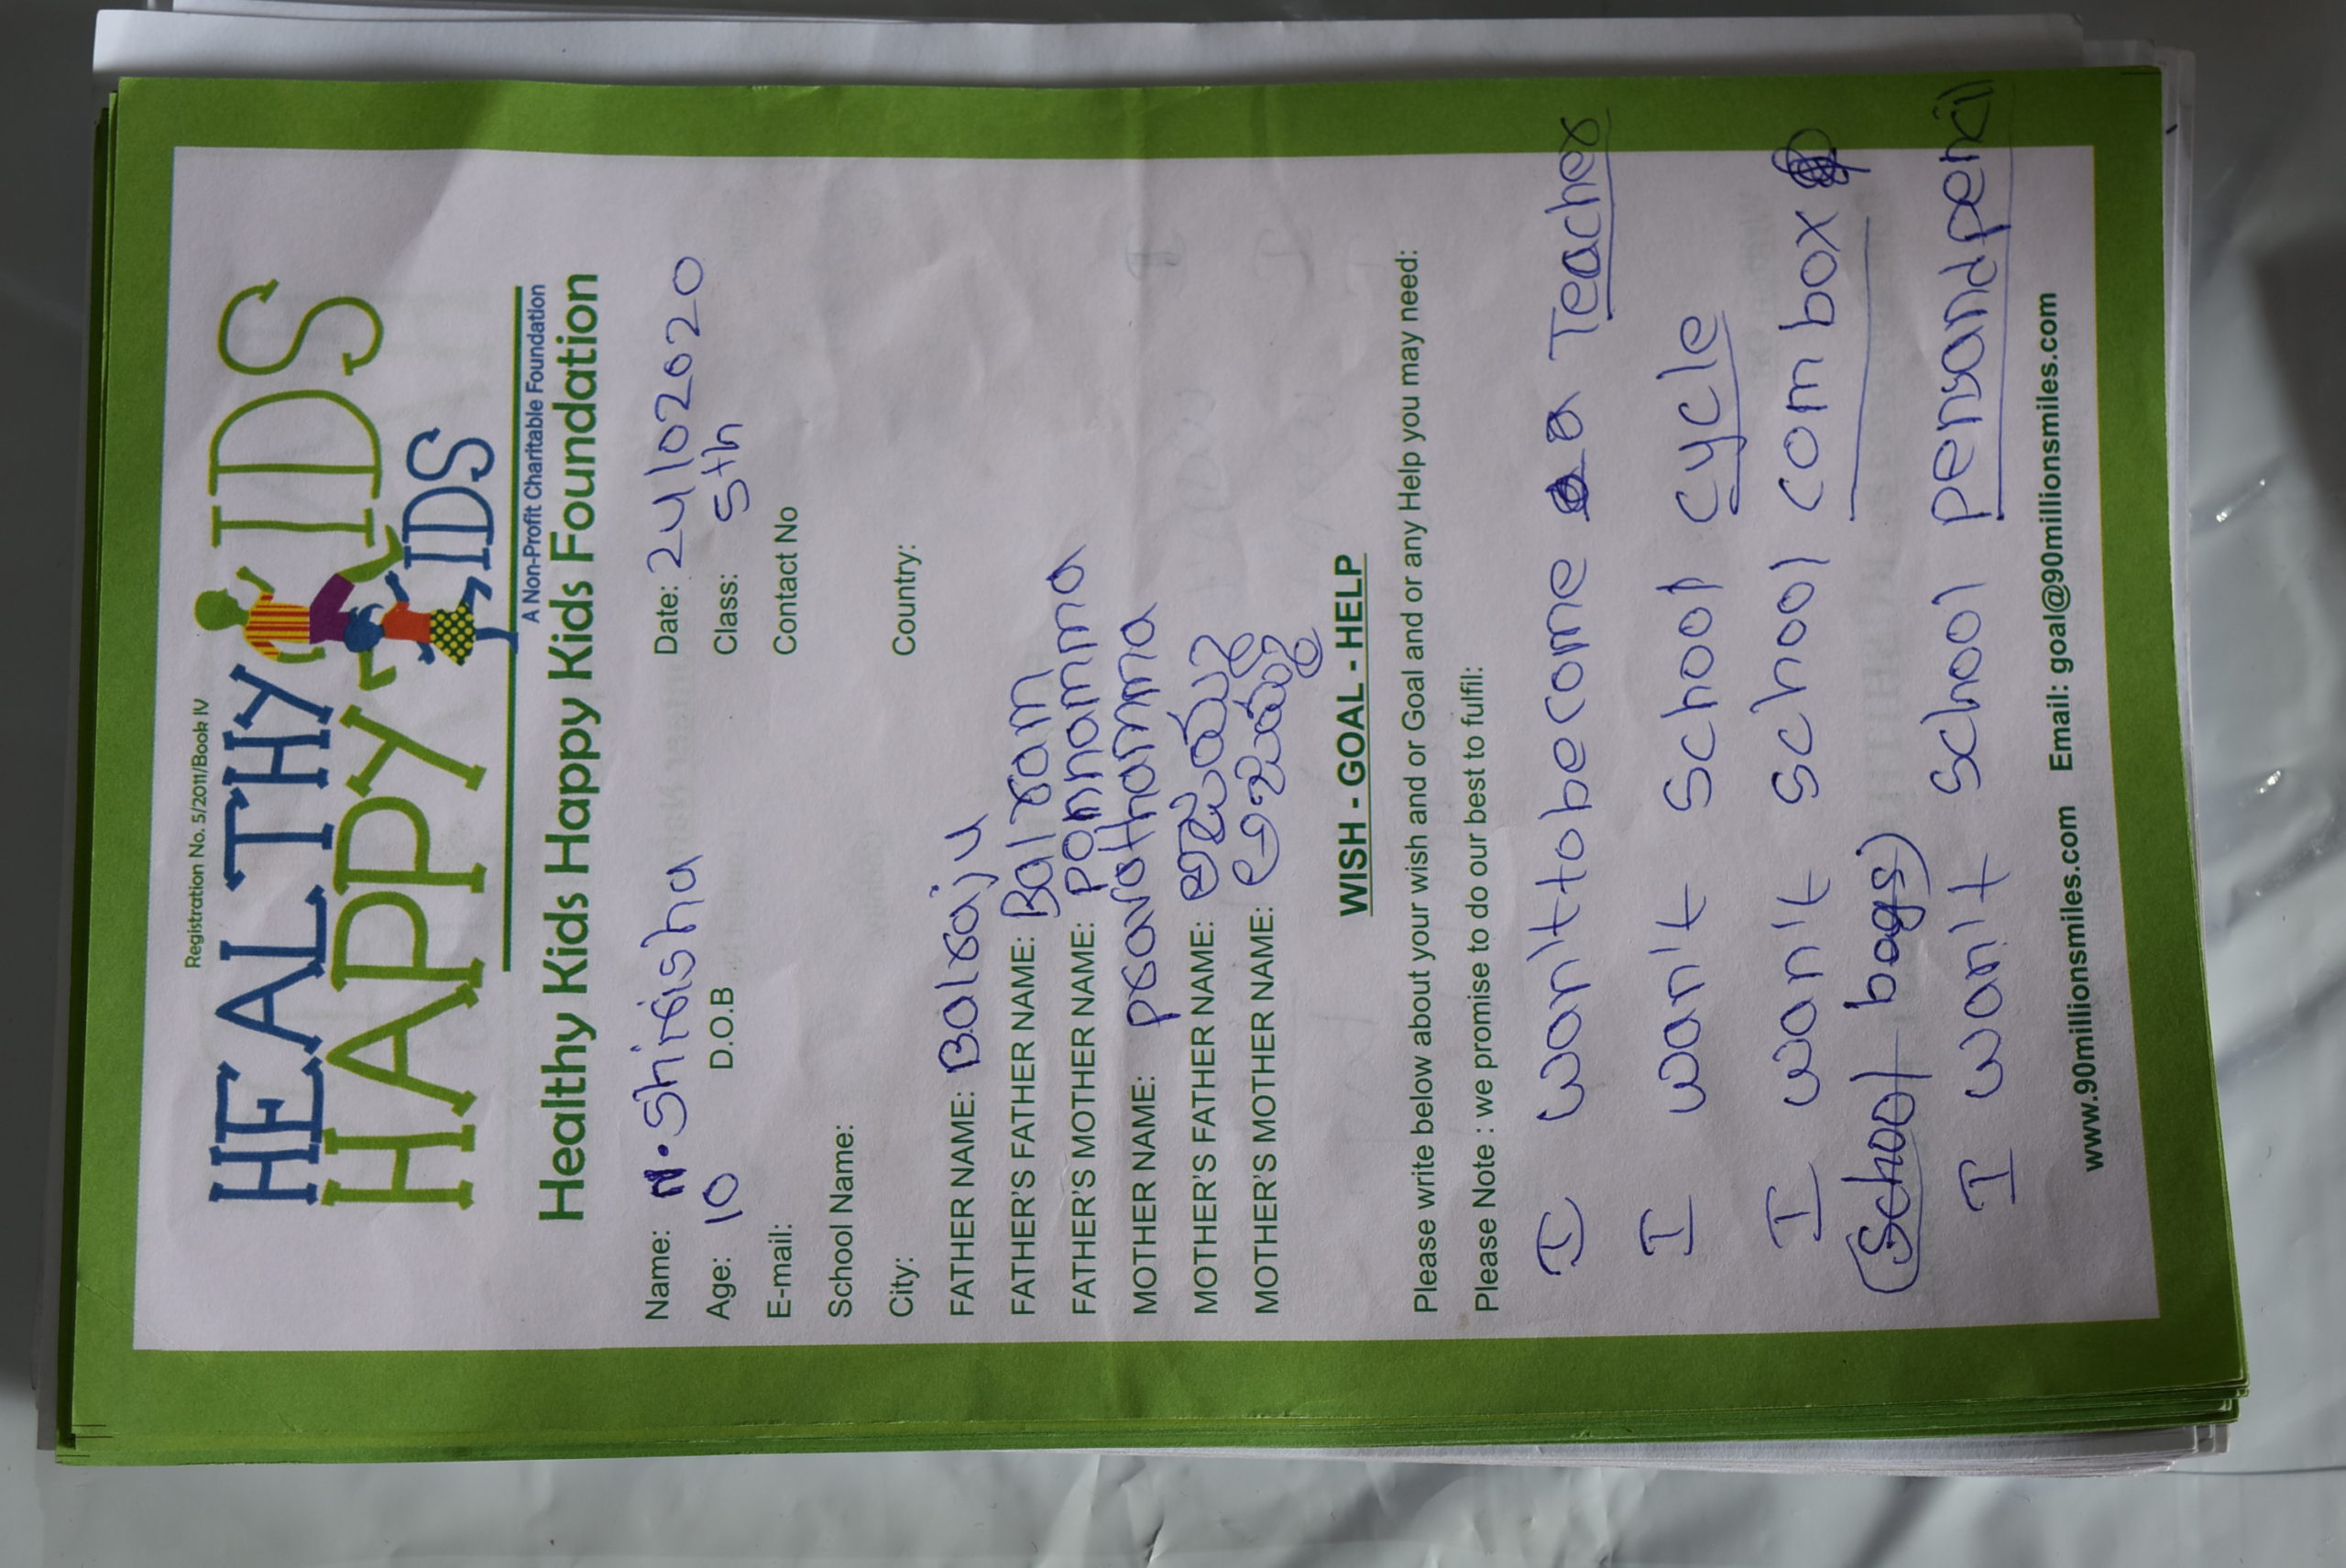 Registration No. 5/2011/Book IV
HEALTHY KIDS
HAPPY KIDS
A Non-Profit Charitable Foundation
Healthy Kids Happy Kids Foundation
Name: N. Shirisha Date: 24/02020
Age: 10 D.O.B Class: 5th
E-mail: Contact No
School Name:
City: Country:
FATHER NAME: Balraju
FATHER'S FATHER NAME: Balram
FATHER'S MOTHER NAME: ponnamma
MOTHER NAME: pravathamma
MOTHER'S FATHER NAME:
MOTHER'S MOTHER NAME:
WISH - GOAL - HELP
Please write below about your wish and or Goal and or any Help you may need:
Please Note : we promise to do our best to fulfil:
I wan't to become a Teacher
I wan't School cycle
I wan't School com box
(School bags)
I wan't School pensand pencil
www.90millionsmiles.com Email: goal@90millionsmiles.com